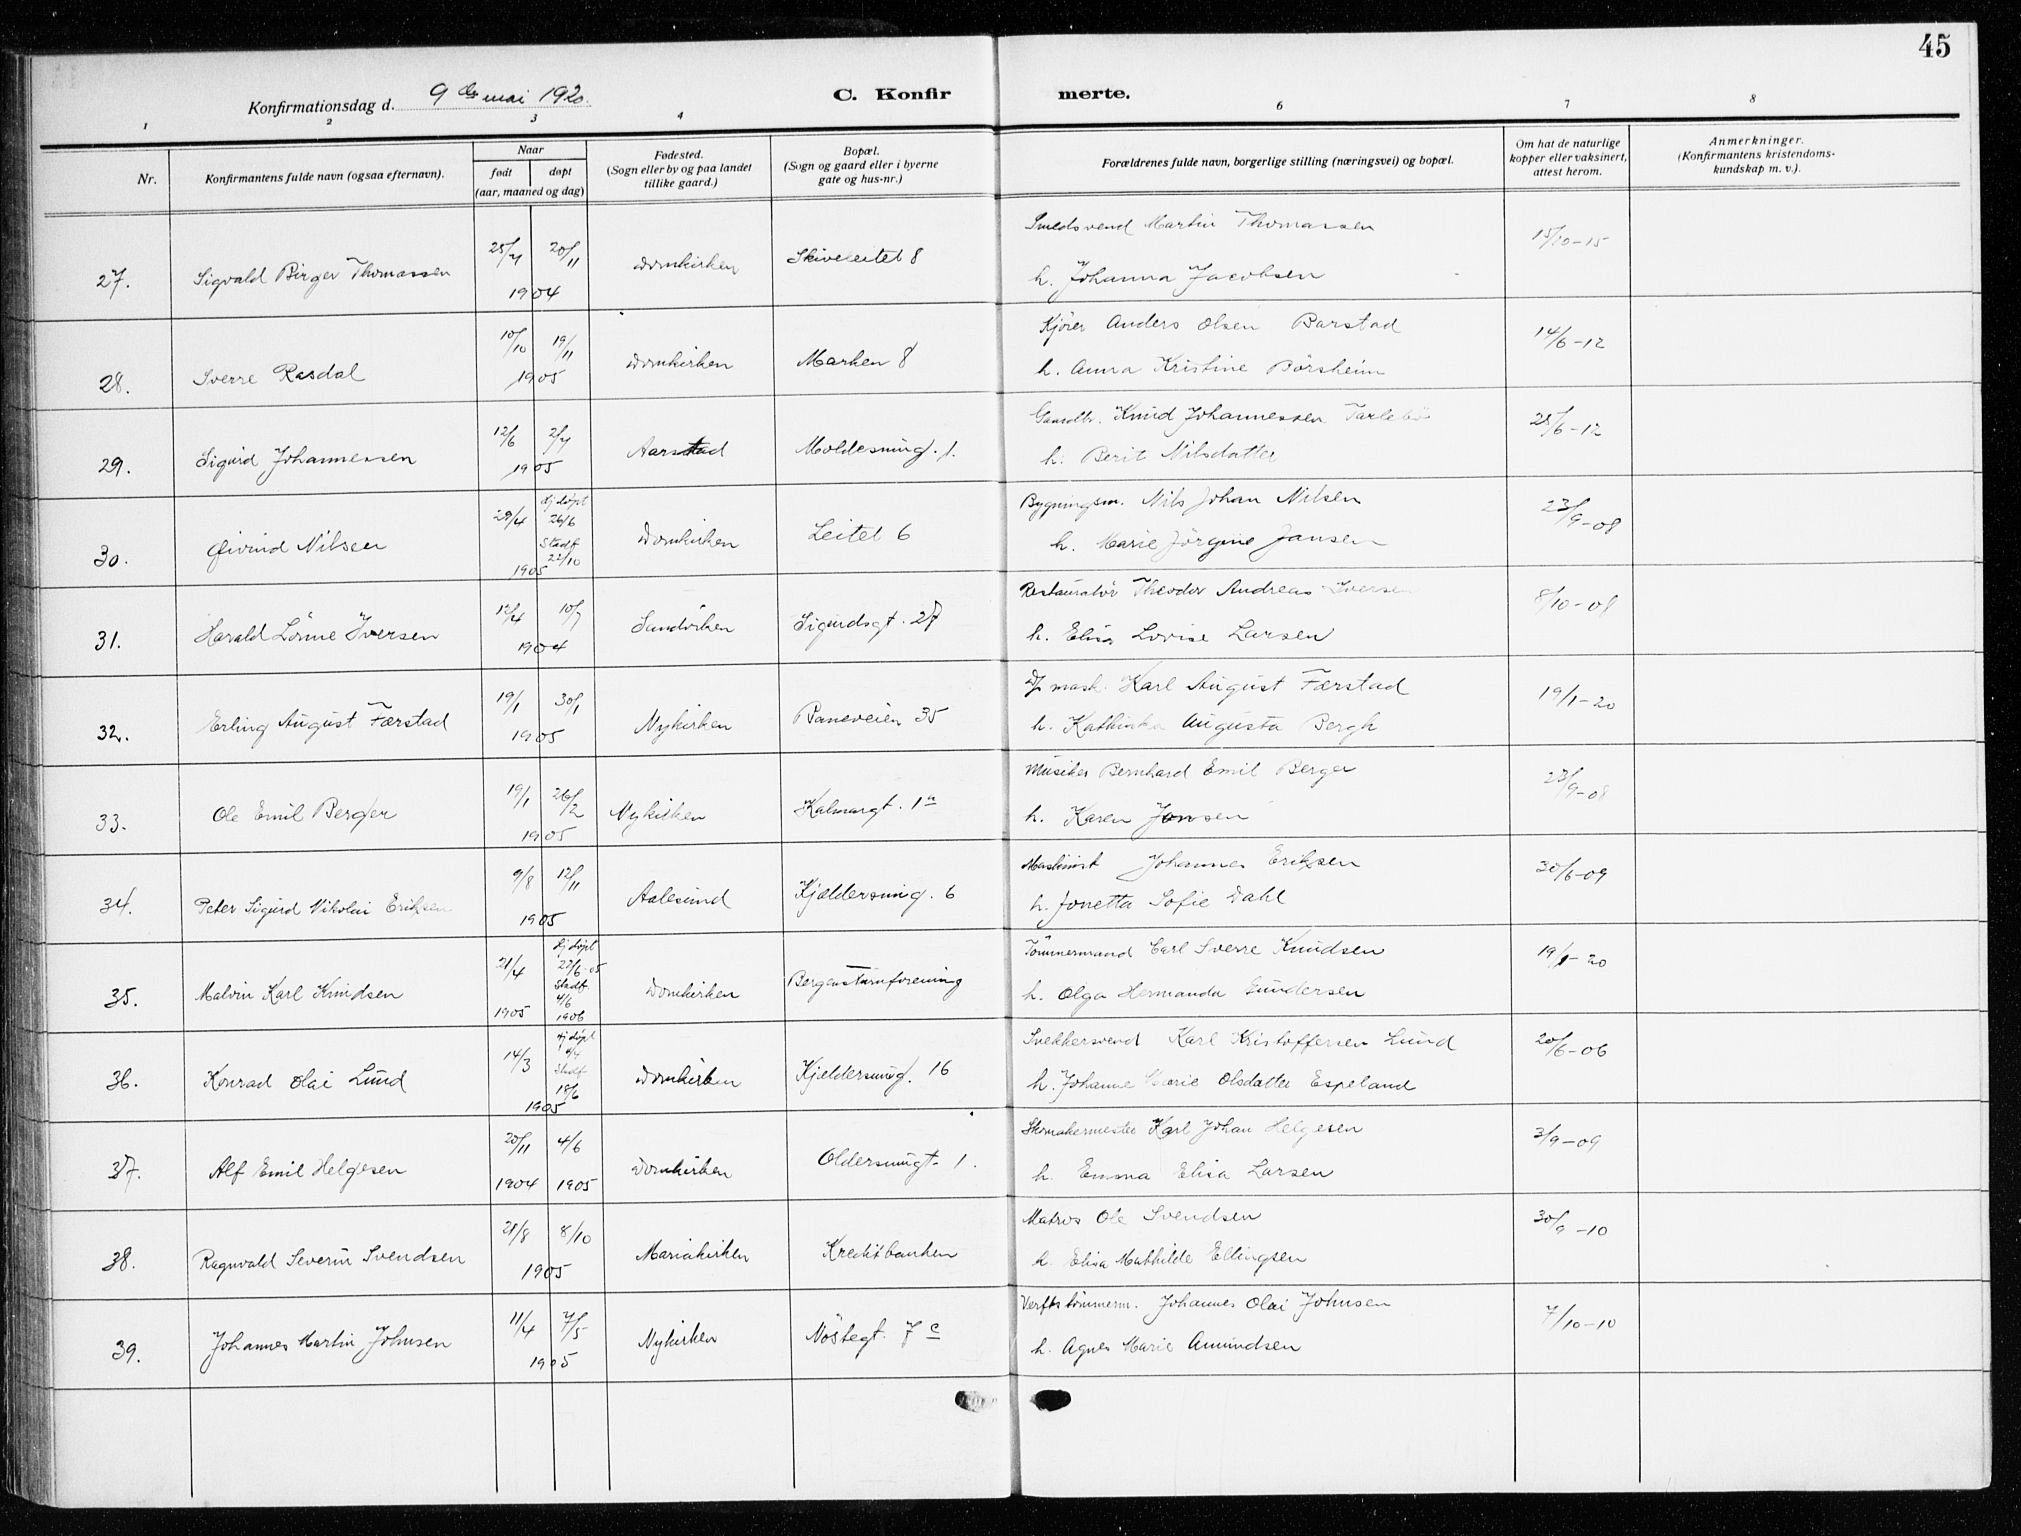 45
Konfirmationsdag d. 9de mai 1920.
C. Konfirmerte.
1 2 3 4 6 7 8
Nr.
Konfirmantens fulde navn (ogsaa efternavn).
Naar
født døpt
(aar, maaned og dag)
Fødested.
(Sogn eller by og paa landet
tillike gaard.)
Bopæl.
(Sogn og gaard eller i byerne
gate og hus-nr.)
Forældrenes fulde navn, borgerlige stilling (næringsvei) og bopæl.
Om hat de naturlige
kopper eller vaksinert,
attest herom.
Anmerkninger.
(Konfirmantens kristendoms-
kundskap m. v.).
27. Sigvald Birger Thomassen 20/11 1904 Domkirken Skiveleitet 8
Smedsvend Martin Thomassen 15/10-15
h. Johanna Jacobsen
28. Sverre Rasdal 10/10 19/11 1905 Domkirken Marken 8
Kjører Anders Olsen Barstad 14/6-12
h. Anna Kristine Børsheim
29. Sigurd Johannessen 12/6 2/7 1905 Aarstad Moldesmug. 1.
Knud Johannessen 28/6-12
h. Berit Nilsdatter
30. Øivind Nilsen 29/4 Hj døpt 26/6 Stadf. 22/10 1905 Domkirken Leitet 6
Bygningsm. Nils Johan Nilsen 23/9-08
h. Marie Jörgine Jansen
31. Harald Lönne Iversen 12/4 10/7 1904 Sandviken Sigurdsgt. 27
Restauratør Theodor Andreas Iversen 8/10-08
h. Elisa Lovise Larsen
32. Erling August Færstad 19/1 30/1 1905 Nykirken Baneveien 35
D/ mask. Karl August Færstad 19/1-20
h. Kathinka Augusta Bergh
33. Ole Emil Berger 19/1 26/2 1905 Nykirken Kalmargt. 1a
Musiker Bernhard Emil Berger 23/9-08
h. Karen Jonsen
34. Peter Sigurd Nikolai Eriksen 9/8 12/11 1905 Aalesund Kjeldersmug. 6
Maskinist Johannes Eriksen 30/6-09
h. Jonetta Sofie Dahl
35. Malvin Karl Knudsen 21/4 1905 Hj døpt 27/6-05 Stadf. 4/6 1906 Domkirken Bergens Turnforening
Tömmermand Carl Sverre Knudsen 19/1-20
h. Olga Hermanda Gundersen
36. Konrad Olai Lund 14/3 Hj døpt Stadf. 18/6 1905 Domkirken Kjeldersmug. 16
Snekkersvend Karl Kristoffersen Lund 20/6-06
h. Johanne Marie Olsdatter Espeland
37. Alf Emil Helgesen 20/11 1904 4/6 1905 Domkirken Oldersmugt. 1.
Skomakermester Karl Johan Helgesen 3/9-09
h. Emma Elisa Larsen
38. Ragnvald Severin Svendsen 21/8 8/10 1905 Mariakirken Kreditbanken
Matros Ole Svendsen 30/9-10
h. Elisa Mathilde Ellingsen
39. Johannes Martin Johnsen 11/4 7/5 1905 Nykirken Nöstegt. 7c
Verftstömmerm. Johannes Olai Johnsen 7/10-10
h. Agnes Marie Amundsen